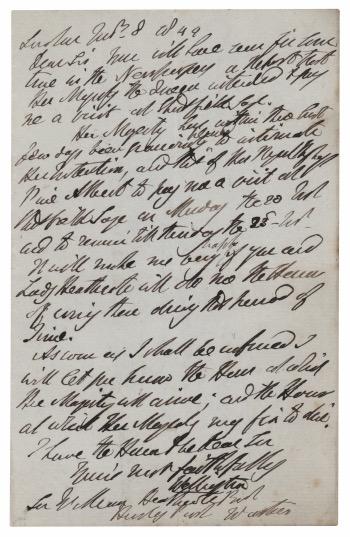 Dear Sir, You will have seen for some
time in the Newspapers a report that
Her Majesty the Queen intended to pay
me a visit at Strathfield Saye.
Her Majesty has within these last
few days been graciously pleased to intimate
Her Intention, and that of His Royal Highness
Prince Albert to pay me a visit at
Strathfield Saye on Monday the 20 Inst
and to remain till Thursday the Inst.
It will make me very happy if you and
Lady Heathcote will do me the Honour
of coming there during that period of
Time.
As soon as I shall be informed I
will let you know the Hour at which
Her Majesty will arrive; and the Hour
at which Her Majesty may fix to dine.
I have the Honor to be Dear Sir
Yours most faithfully
Wellington
Sir William Heathcote Bart
Hursley Park Winchester